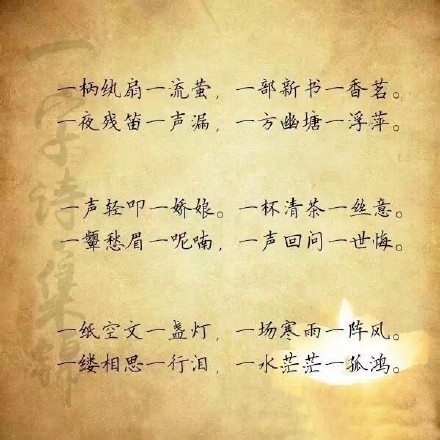 一字诗集锦
一柄纨扇一流萤，一部新书一香茗。
一夜残笛一声漏，一方幽塘一浮萍。
一声轻叩一娇娘。一杯清茶一丝意。
一颦愁眉一呢喃，一声回问一世悔。
一纸空文一盏灯，一场寒雨一阵风。
一缕相思一行泪，一水茫茫一孤鸿。